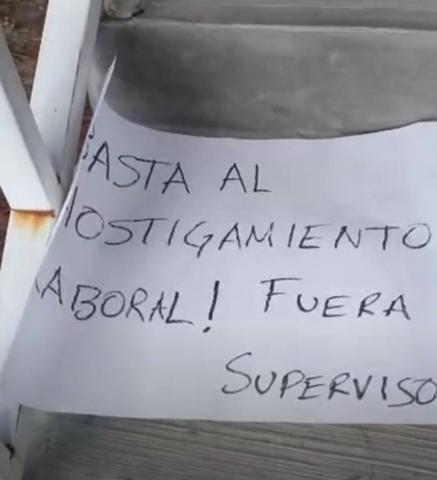 BASTA AL
HOSTIGAMIENTO
LABORAL! FUERA
SUPERVISO